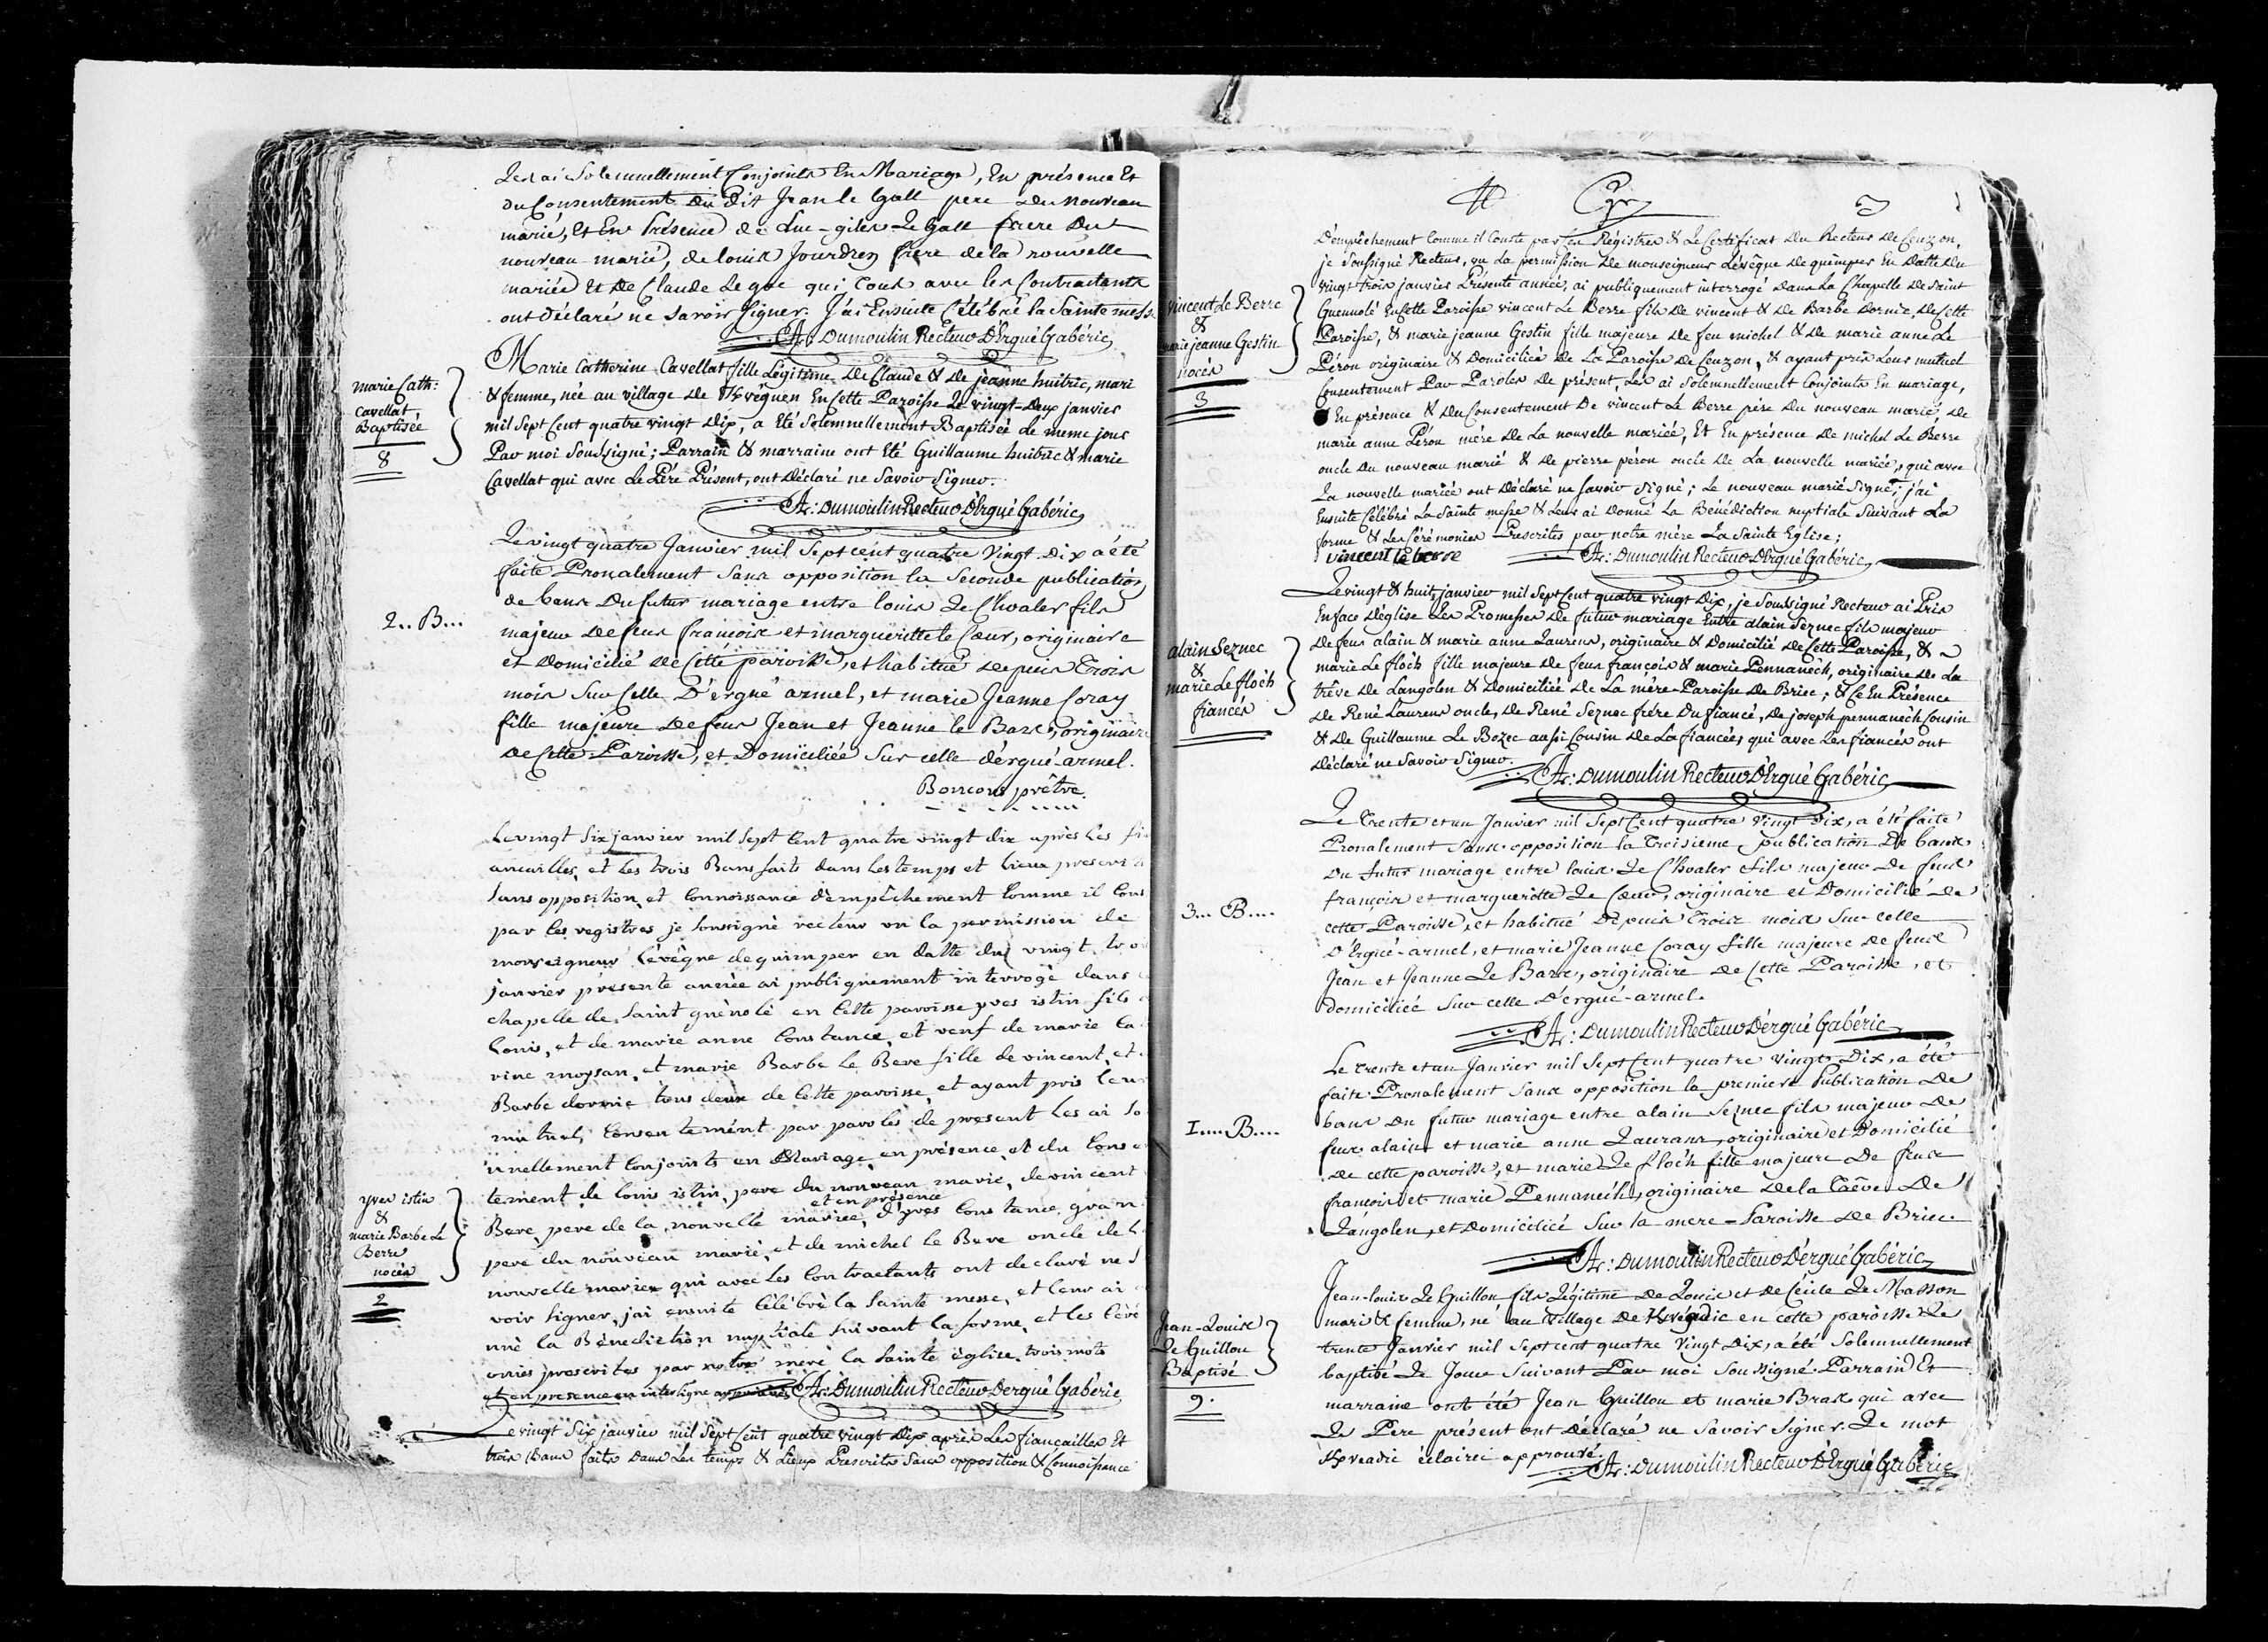 Les ai Solemnellement Conjoints En Mariage, En présence Et
du Consentement du Dit Jean le Gall pere du nouveau
marié, Et En Présence de Luc-giles Le Gall frere du
nouveau marié, de louis Jourdren frere de la nouvelle
mariée Et de Claude Le goe qui tous avec les Contractants
ont déclaré ne Savoir Signer. J'ai Ensuite Célébré la Sainte mess
A: Dumoulin Recteur D'Ergué Gabéric
marie Cath:
cavellat
Baptisée
8
Marie Catherine Cavellat fille Légitime De Claude & De jeanne huitric, mari
& femme, née au village de Kvéguen En Cette Paroisse Le vingt-Deux janvier
mil Sept Cent quatre vingt Dix, a Eté Solemnellement Baptisée le meme jour
Par moi Soussigné; Parrain & marraine ont Eté Guillaume huitric & marie
Cavellat qui avec Le Père Présent, ont Déclaré ne Savoir Signer.
A: Dumoulin Recteur D'Ergué Gabéric
2.. B...
Le vingt quatre Janvier mil Sept cent quatre Vingt Dix a été
faite Pronalement Sans opposition la Seconde publication
de bans Du futur mariage entre louis Le C'hoaler fils
majeur de feus francois et marguerittte le Cœur, originaire
et Domicilié de Cette paroisse, et habitué depuis Trois
mois Sur Celle D'ergué armel, et marie Jeanne Coray
fille majeure de feus Jean et Jeanne le Bars, originaire
de Cette Paroisse, et Domiciliée Sur celle d'ergué-armel.
Boncour prêtre
Le vingt Six janvier mil Sept Cent quatre vingt dix après Les fi
ancailles, et Les trois Bans faits dans Les temps et Lieux prescrits
Sans opposition et Connoissance d'empêchement Comme il Cons
par Les registres je Soussigné recteur vu la permission de
monseigneur L'évêque de quimper en datte du vingt tro
janvier présente année ai publiquement interrogé dans
chapelle de Saint guénolé en Cette paroisse yves istin fils
Louis, et de marie anne Constance, et veuf de marie Ca
rine moysan, et marie Barbe le Bere fille de vincent, et
Barbe dornic tous deux de Cette paroisse, et ayant pris leur
mutuel Consentement par paroles de present Les ai So
mnellement Conjoints en Mariage en présence et du Conse
yves istin
&
marie Barbe Le
Berre
nocés
2
tement de louis istin, pere du nouveau marié, de vincent
et en présence
Bere, pere de la nouvelle mariée, d'yves Constance gran
pere du nouveau marié, et de michel le Bere oncle de l
nouvelle mariée qui avec Les Contractants ont declaré ne S
voir Signer, jai ensuite Célébré la Sainte messe, et leur ai
nné la Bénediction nuptiale Suivant la forme, et les Céré
onies prescrites par notre mere la Sainte église. trois mots
et en presence en interligne approuvés A: Dumoulin Recteur D'ergué Gabéric
Le vingt Six janvier mil Sept Cent quatre vingt Dix après Les fiançailles Et
trois Bans faits Dans Les temps & Lieux Prescrits Sans opposition & Connoissance
D'empêchement Comme il Conste par Les Régistres & Le Certificat Du Recteur De Cuzon,
je Soussigné Recteur, vu La permission De monseigneur L'évêque De quimper En Datte Du
vingt-trois janvier Présente année, ai publiquement interrogé Dans La Chapelle De Saint
vincent Le Berre
&
marie jeanne Gestin
nocés
3
Guennolé En Cette Paroisse vincent Le Berre fils De vincent & De Barbe Dornic, De Cette
Paroisse, & marie jeanne Gestin fille majeure De feu michel & De marie anne Le
Péron originaire & Domiciliée De La Paroisse De Cuzon, & ayant pris Leur mutuel
Consentement Par Paroles De présent, Les ai Solemnellement Conjoints En mariage,
En présence & Du Consentement De vincent Le Berre père Du nouveau marié, De
marie anne Péron mère De La nouvelle mariée, Et En présence De michel Le Berre
oncle Du nouveau marié & De pierre péron oncle De La nouvelle mariée, qui avec
La nouvelle mariée ont Déclaré ne Savoir Signé; Le nouveau marié Signe; j'ai
Ensuite Célébré La Sainte messe & Leur ai Donné La Bénédiction nuptiale Suivant La
forme & Les Cérémonies Prescrites par notre mère La Sainte Eglise;
vincent le berre A: Dumoulin Recteur D'Ergué Gabéric
alain Seznec
&
marie Le floch
fiancés
Le vingt & huit janvier mil Sept Cent quatre vingt Dix, je Soussigné Recteur ai Pris
En face D'église Les Promesses De futur mariage Entre alain Seznec fils majeur
De feus alain & marie anne Laurens, originaire & Domicilié De Cette Paroisse, &
marie Le floc'h fille majeure De feus françois & marie Pennanec'h, originaire De La
trêve De Langolen & Domiciliée De La mère-Paroisse De Briec; & Ce En Présence
De René Laurens oncle, De René Seznec frére Du fiancé, De joseph pennanec'h Cousin
& De Guillaume Le Bozec aussi Cousin De La fiancée, qui avec Les fiancés ont
Déclaré ne Savoir Signer.
A: Dumoulin Recteur D'Ergué Gabéric
3... B....
Le Trente et un Janvier mil Sept Cent quatre Vingt Dix, a été faite
Pronalement Sans opposition la Troisieme publication De bans
Du futur mariage entre louis Le C'hoaler fils majeur De feus
françois et marguerotte Le Cœur, originaire et Domicilié De
cette Paroisse, et habitué Depuis Trois mois Sur Celle
D'Ergué-armel, et marie Jeanne Coray fille majeure De feus
Jean et Jeanne Le Bars, originaire De Cette Paroisse, et
Domiciliée Sur celle D'ergué-armel.
A: Dumoulin Recteur D'ergué Gabéric
1.... B....
Le Trente et un Janvier mil Sept Cent quatre vingt Dix, a été
faite Pronalement Sans opposition la premiere Publication De
bans Du futur mariage entre alain Seznec fils majeur De
feus alain et marie anne Laurans, originaire et Domicilié
De cette paroisse, et marie Le floc'h fille majeure De feus
francois et marie Pennanec'h, originaire De la Trêve De
Langolen, et Domiciliée Sur la mere-Paroisse De Briec.
A: Dumoulin Recteur D'ergué Gabéric
Jean-Louis
Le Guillou
Baptisé
9.
Jean-louis Le Guillou fils Légitime De Louis et De Cécile Le Masson
mari & femme, né au Village De Kvréadic en cette paroisse Le
trente Janvier mil Sept cent quatre Vingt Dix, a été Solemnellement
baptisé Le Jour Suivant Par moi Soussigné Parrain Et
marraine ont été Jean Guillou et marie Bras qui avec
Le Pere présent ont Déclaré ne Savoir Signer. Le mot
Kvreadic éclairci approuvé.
A: Dumoulin Recteur D'Ergué Gabéric